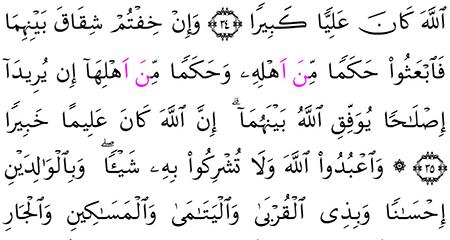 ٱللَّهَ كَانَ عَلِيًّا كَبِيرًا ﴿٣٤﴾ وَإِنْ خِفْتُمْ شِقَاقَ بَيْنِهِمَا
فَٱبْعَثُوا۟ حَكَمًا مِّنَ اَهْلِهِۦ وَحَكَمًا مِّنَ اَهْلِهَآ إِن يُرِيدَآ
إِصْلَـٰحًا يُوَفِّقِ ٱللَّهُ بَيْنَهُمَآ ۗ إِنَّ ٱللَّهَ كَانَ عَلِيمًا خَبِيرًا
﴿٣٥﴾ ۞ وَٱعْبُدُوا۟ ٱللَّهَ وَلَا تُشْرِكُوا۟ بِهِۦ شَيْـًٔا ۖ وَبِٱلْوَٰلِدَيْنِ
إِحْسَـٰنًا وَبِذِى ٱلْقُرْبَىٰ وَٱلْيَتَـٰمَىٰ وَٱلْمَسَـٰكِينِ وَٱلْجَارِ